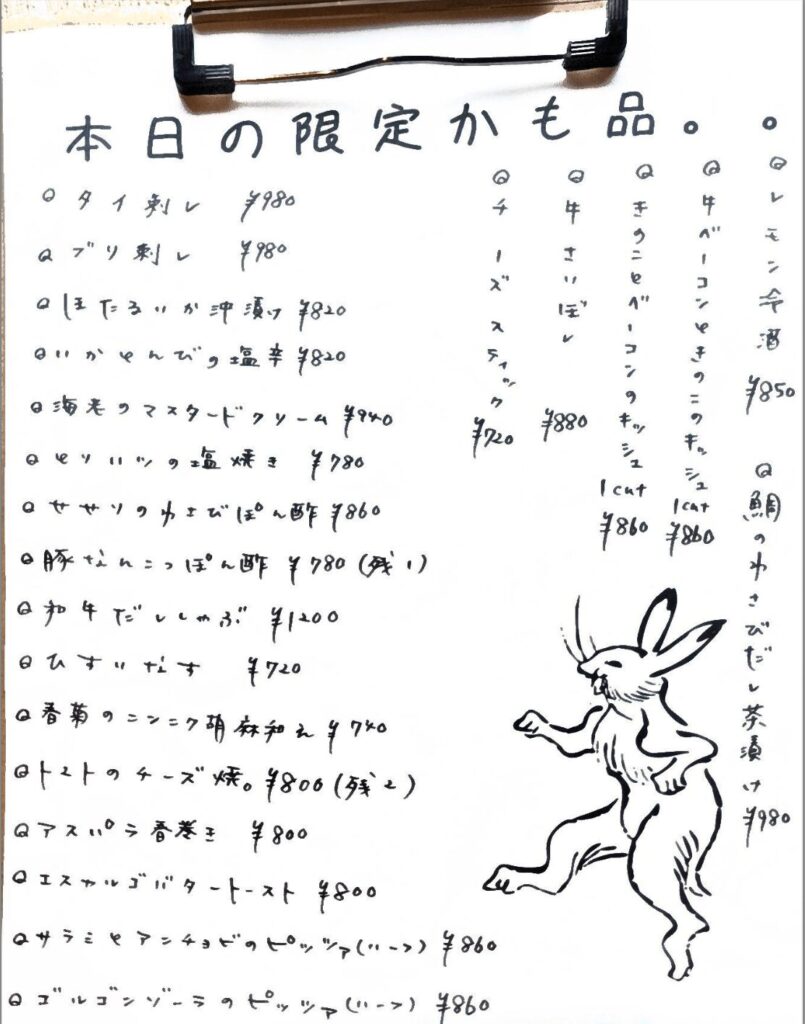 本日の限定かも品。。
タイ刺し ¥980
ブリ刺し ¥980
ほたるいか沖漬け ¥820
いかとんびの塩辛 ¥820
海老のマスタードクリーム ¥940
とりハツの塩焼き ¥780
せせりのわさびぽん酢 ¥860
豚なんこつぽん酢 ¥780 (残1)
和牛だししゃぶ ¥1200
ひすいなす ¥720
春菊のニンニク胡麻和え ¥740
トマトのチーズ焼。¥800 (残2)
アスパラ春巻き ¥800
エスカルゴバタートースト ¥800
サラミとアンチョビのピッツァ(ハーフ) ¥860
ゴルゴンゾーラのピッツァ(ハーフ) ¥860
レモン冷酒 ¥850
鯛のわさびだし茶漬け ¥980
牛ベーコンときのこのキッシュ 1cut ¥860
きのことベーコンのキッシュ 1cut ¥860
牛さいぼし ¥880
チーズスティック ¥720